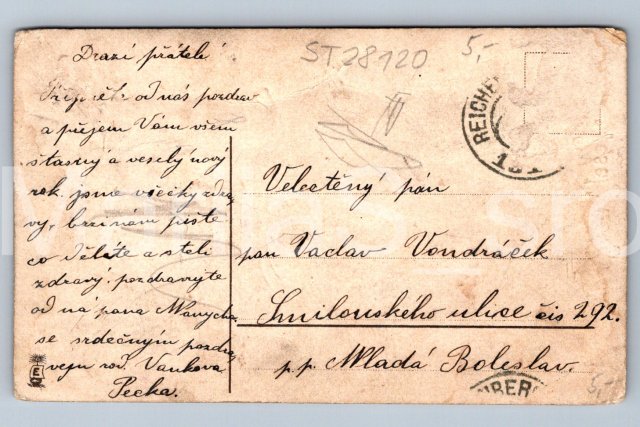 ST28120
5,-
Drazí přátelé!
Přijměte od nás pozdrav
a přejem Vám všem
štastný a veselý nový
rok. jsme všecky zdra
vy, brzi nám piste
co děláte a steli
zdravý. pozdravujte
od ná pana Manycha
se srdečným pozdra
vejn rod. Vaňkova
Pecka.
REICHE
Velectěný pán
pan Vaclav Vondráček
Smilouského ulice čis 292.
p.p. Mladá Boleslav.
5,-